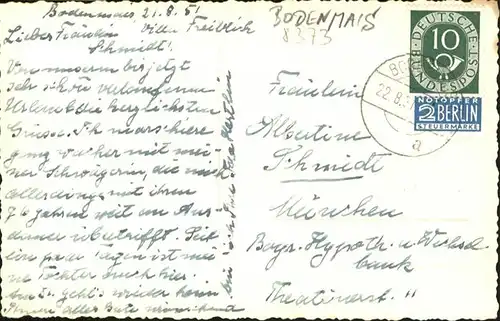 Bodenmais 21.8.51
Villa Freiblick
Liebes Fräulein
Schmidt!
Von unserm bis jetzt
sehr schön verlaufenen
Urlaub die herzlichsten
Grüsse. Ich marschiere
ganz wacker mit mei-
ner Schwägerin, die mich
allerdings mit ihren
76 Jahren weit an Aus-
dauer übertrifft. Seit
ein paar Tagen ist mei-
ne Tochter auch hier.
Am geht's wieder heim
Ihnen alles Gute wünschend
BODENMAIS
8373
DEUTSCHE BUNDESPOST
10
NOTOPFER
2 BERLIN
STEUERMARKE
22.8.5
a
Fräulein
Albertine
Schmidt
München
Bayr. Hypoth. u Wechsel
bank
Theatinerst. 11